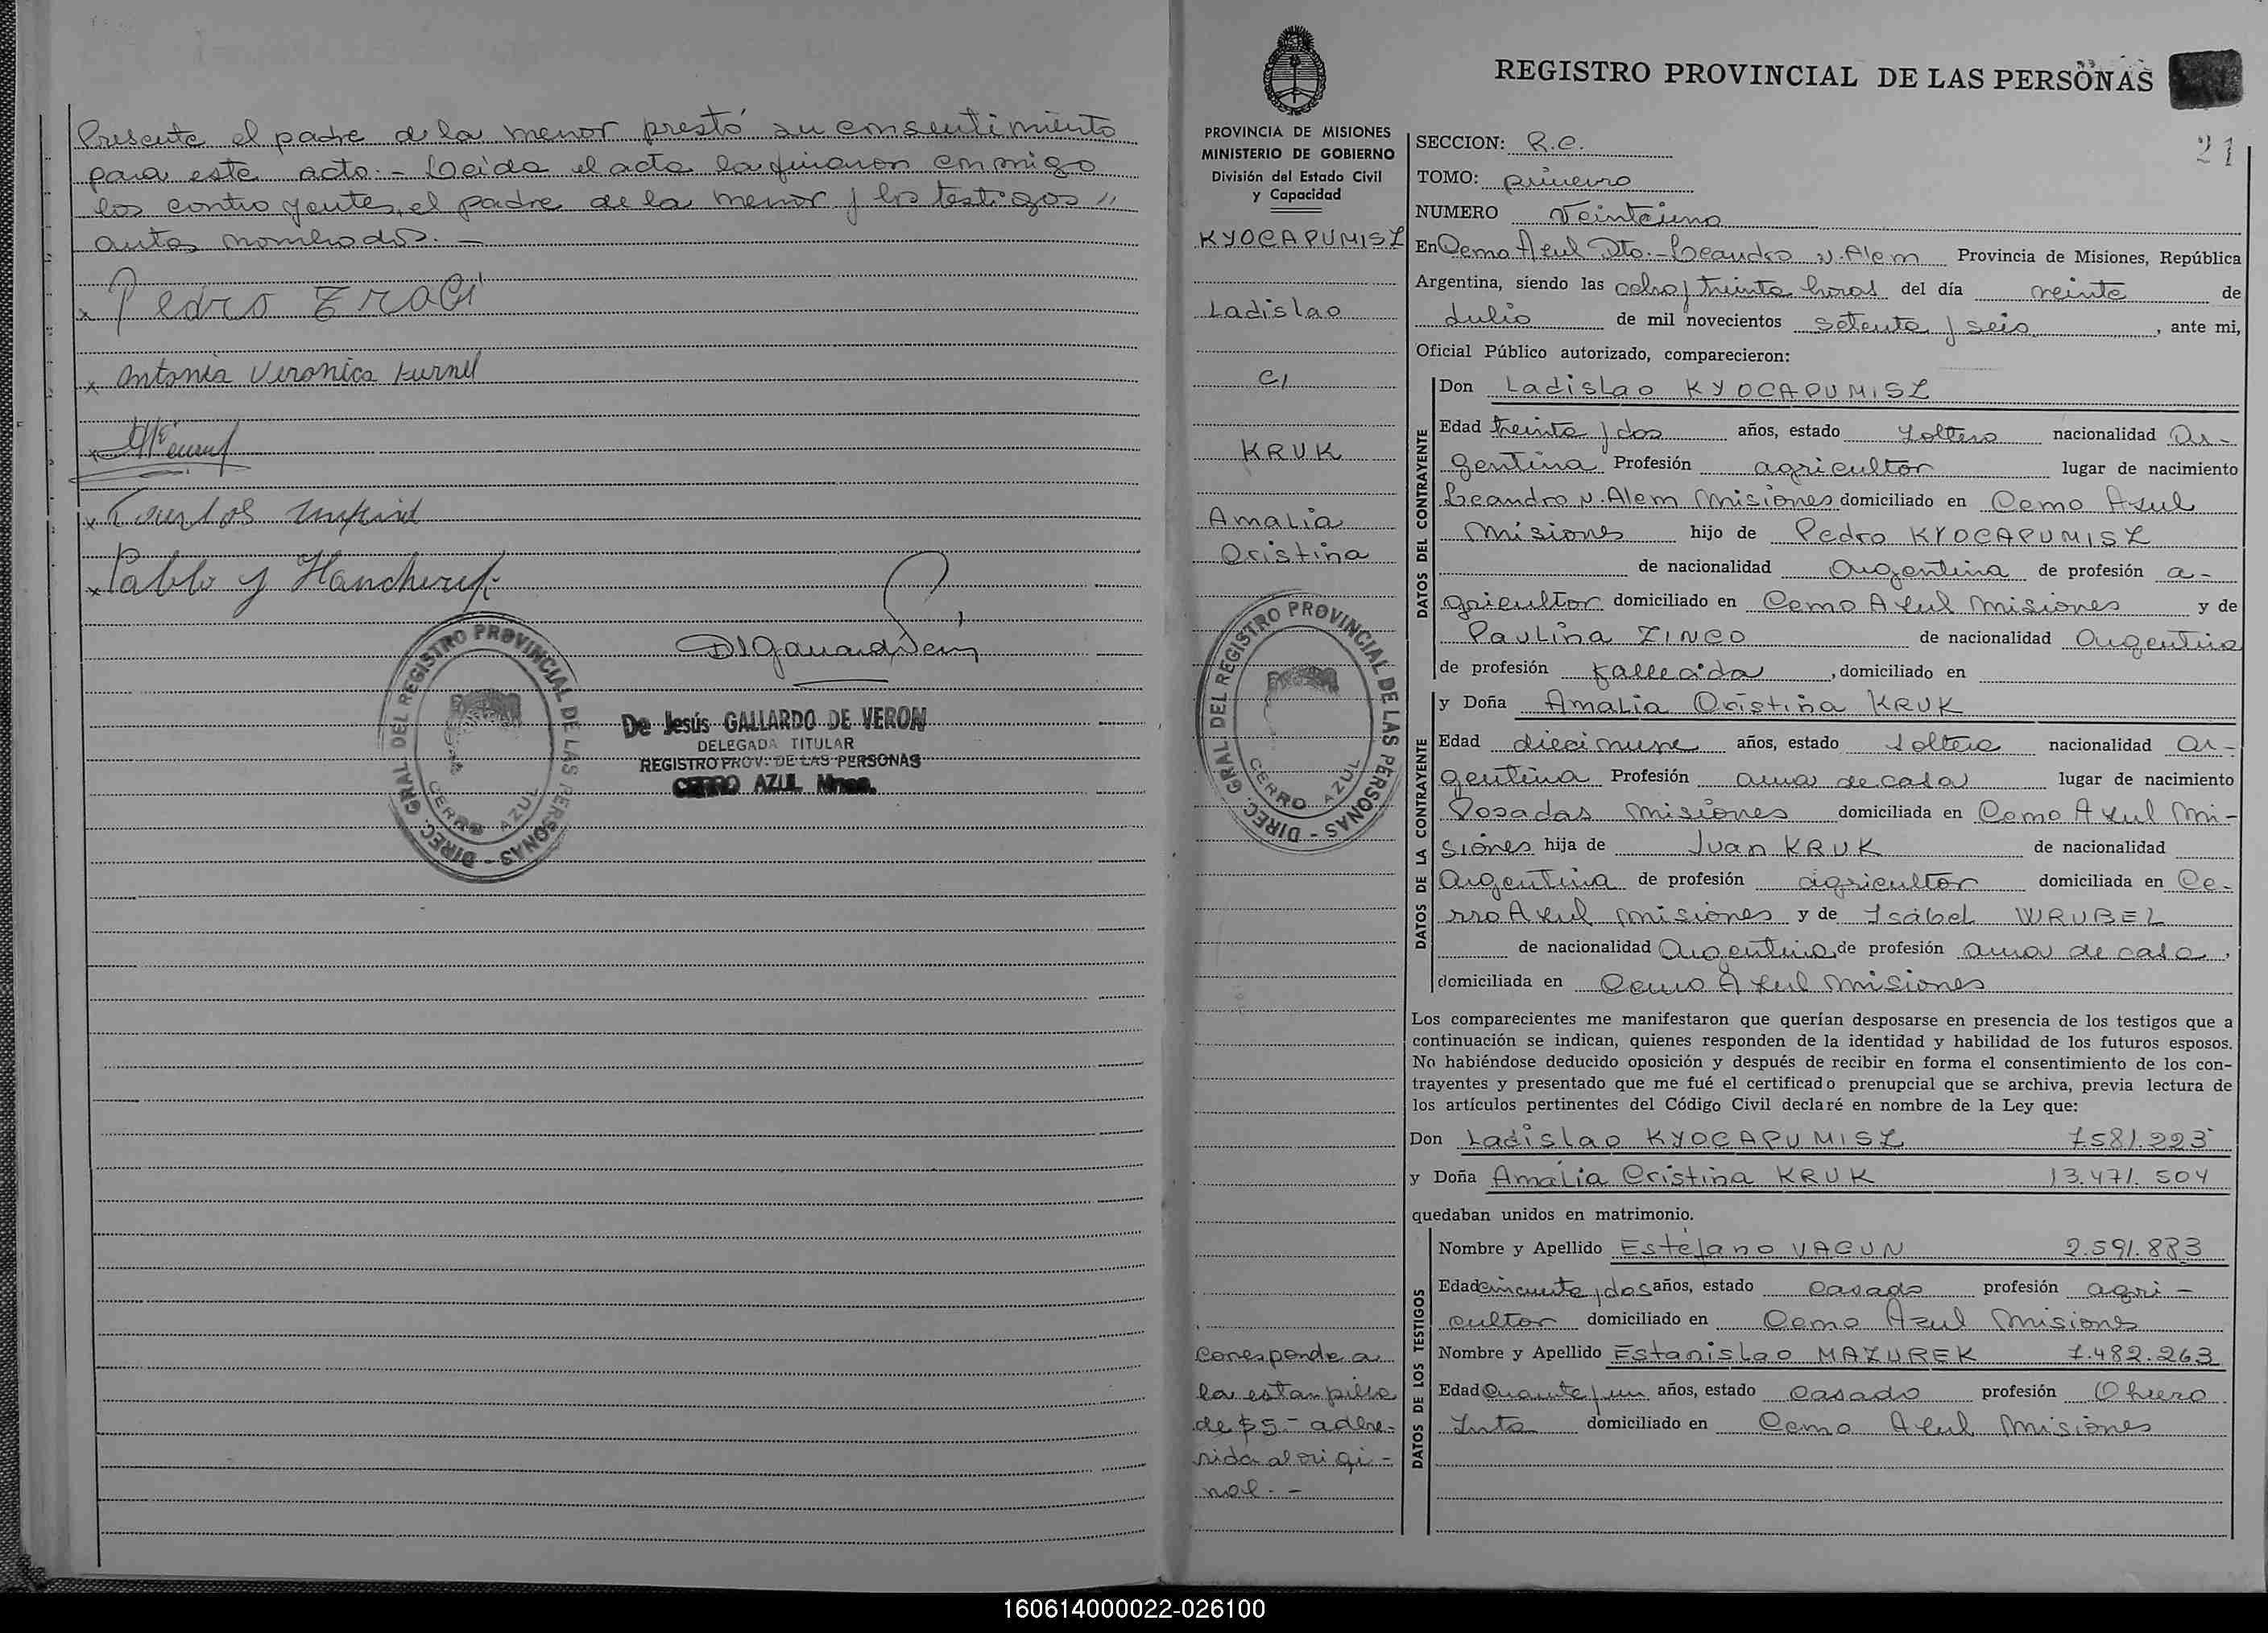 Presente el padre de la menor prestó su consentimiento
para este acto.- Leida el acta la firmaron conmigo
los contrayentes, el padre de la menor y los testigos "
antes nombrados. -
x Pedro
x Antonia Veronica Kurnel
x
x Carlos
x Pablo y
DIREC. GRAL. DEL REGISTRO PROVINCIAL DE LAS PERSONAS -
CERRO AZUL
De Jesús GALLARDO DE VERON
DELEGADA TITULAR
REGISTRO PROV. DE LAS PERSONAS
CERRO AZUL Mnes.
PROVINCIA DE MISIONES
MINISTERIO DE GOBIERNO
División del Estado Civil
y Capacidad
KYOCAPUMISZ
Ladislao
C/
KRUK
Amalia
Cristina
DIREC. GRAL. DEL REGISTRO PROVINCIAL DE LAS PERSONAS -
CERRO AZUL
Corresponde a
la estampilla
de $5.- adhe-
rida al origi-
nal. -
REGISTRO PROVINCIAL DE LAS PERSONAS
21
SECCION: R.C.
TOMO: primero
NUMERO Veintiuno
En Cerro Azul Dto.-Leandro N. Alem Provincia de Misiones, República
Argentina, siendo las ocho y treinta horas del día veinte de
Julio de mil novecientos setenta y seis, ante mi,
Oficial Público autorizado, comparecieron:
DATOS DEL CONTRAYENTE
Don Ladislao KYOCAPUMISZ
Edad treinta y dos años, estado soltero nacionalidad Ar-
gentina Profesión agricultor lugar de nacimiento
Leandro N. Alem Misiones domiciliado en Cerro Azul
Misiones hijo de Pedro KYOCAPUMISZ
de nacionalidad Argentina de profesión a-
gricultor domiciliado en Cerro Azul Misiones y de
Paulina ZINCO de nacionalidad Argentina
de profesión fallecida, domiciliado en
DATOS DE LA CONTRAYENTE
y Doña Amalia Cristina KRUK
Edad diecinueve años, estado soltera nacionalidad Ar-
gentina Profesión ama de casa lugar de nacimiento
Posadas Misiones domiciliada en Cerro Azul Mi-
siones hija de Juan KRUK de nacionalidad
Argentina de profesión agricultor domiciliada en Ce-
rro Azul Misiones y de Isabel WRUBEL
de nacionalidad Argentina de profesión ama de casa,
domiciliada en Cerro Azul Misiones
Los comparecientes me manifestaron que querían desposarse en presencia de los testigos que a
continuación se indican, quienes responden de la identidad y habilidad de los futuros esposos.
No habiéndose deducido oposición y después de recibir en forma el consentimiento de los con-
trayentes y presentado que me fué el certificado prenupcial que se archiva, previa lectura de
los artículos pertinentes del Código Civil declaré en nombre de la Ley que:
Don Ladislao KYOCAPUMISZ 7.581.223
y Doña Amalia Cristina KRUK 13.471.504
quedaban unidos en matrimonio.
DATOS DE LOS TESTIGOS
Nombre y Apellido Estefano VACUN 2.591.883
Edad cincuenta y dos años, estado casado profesión agri-
cultor domiciliado en Cerro Azul Misiones
Nombre y Apellido Estanislao MAZUREK 7.482.263
Edad Cuarenta y un años, estado casado profesión Obrero
Inta domiciliado en Cerro Azul Misiones
160614000022-026100